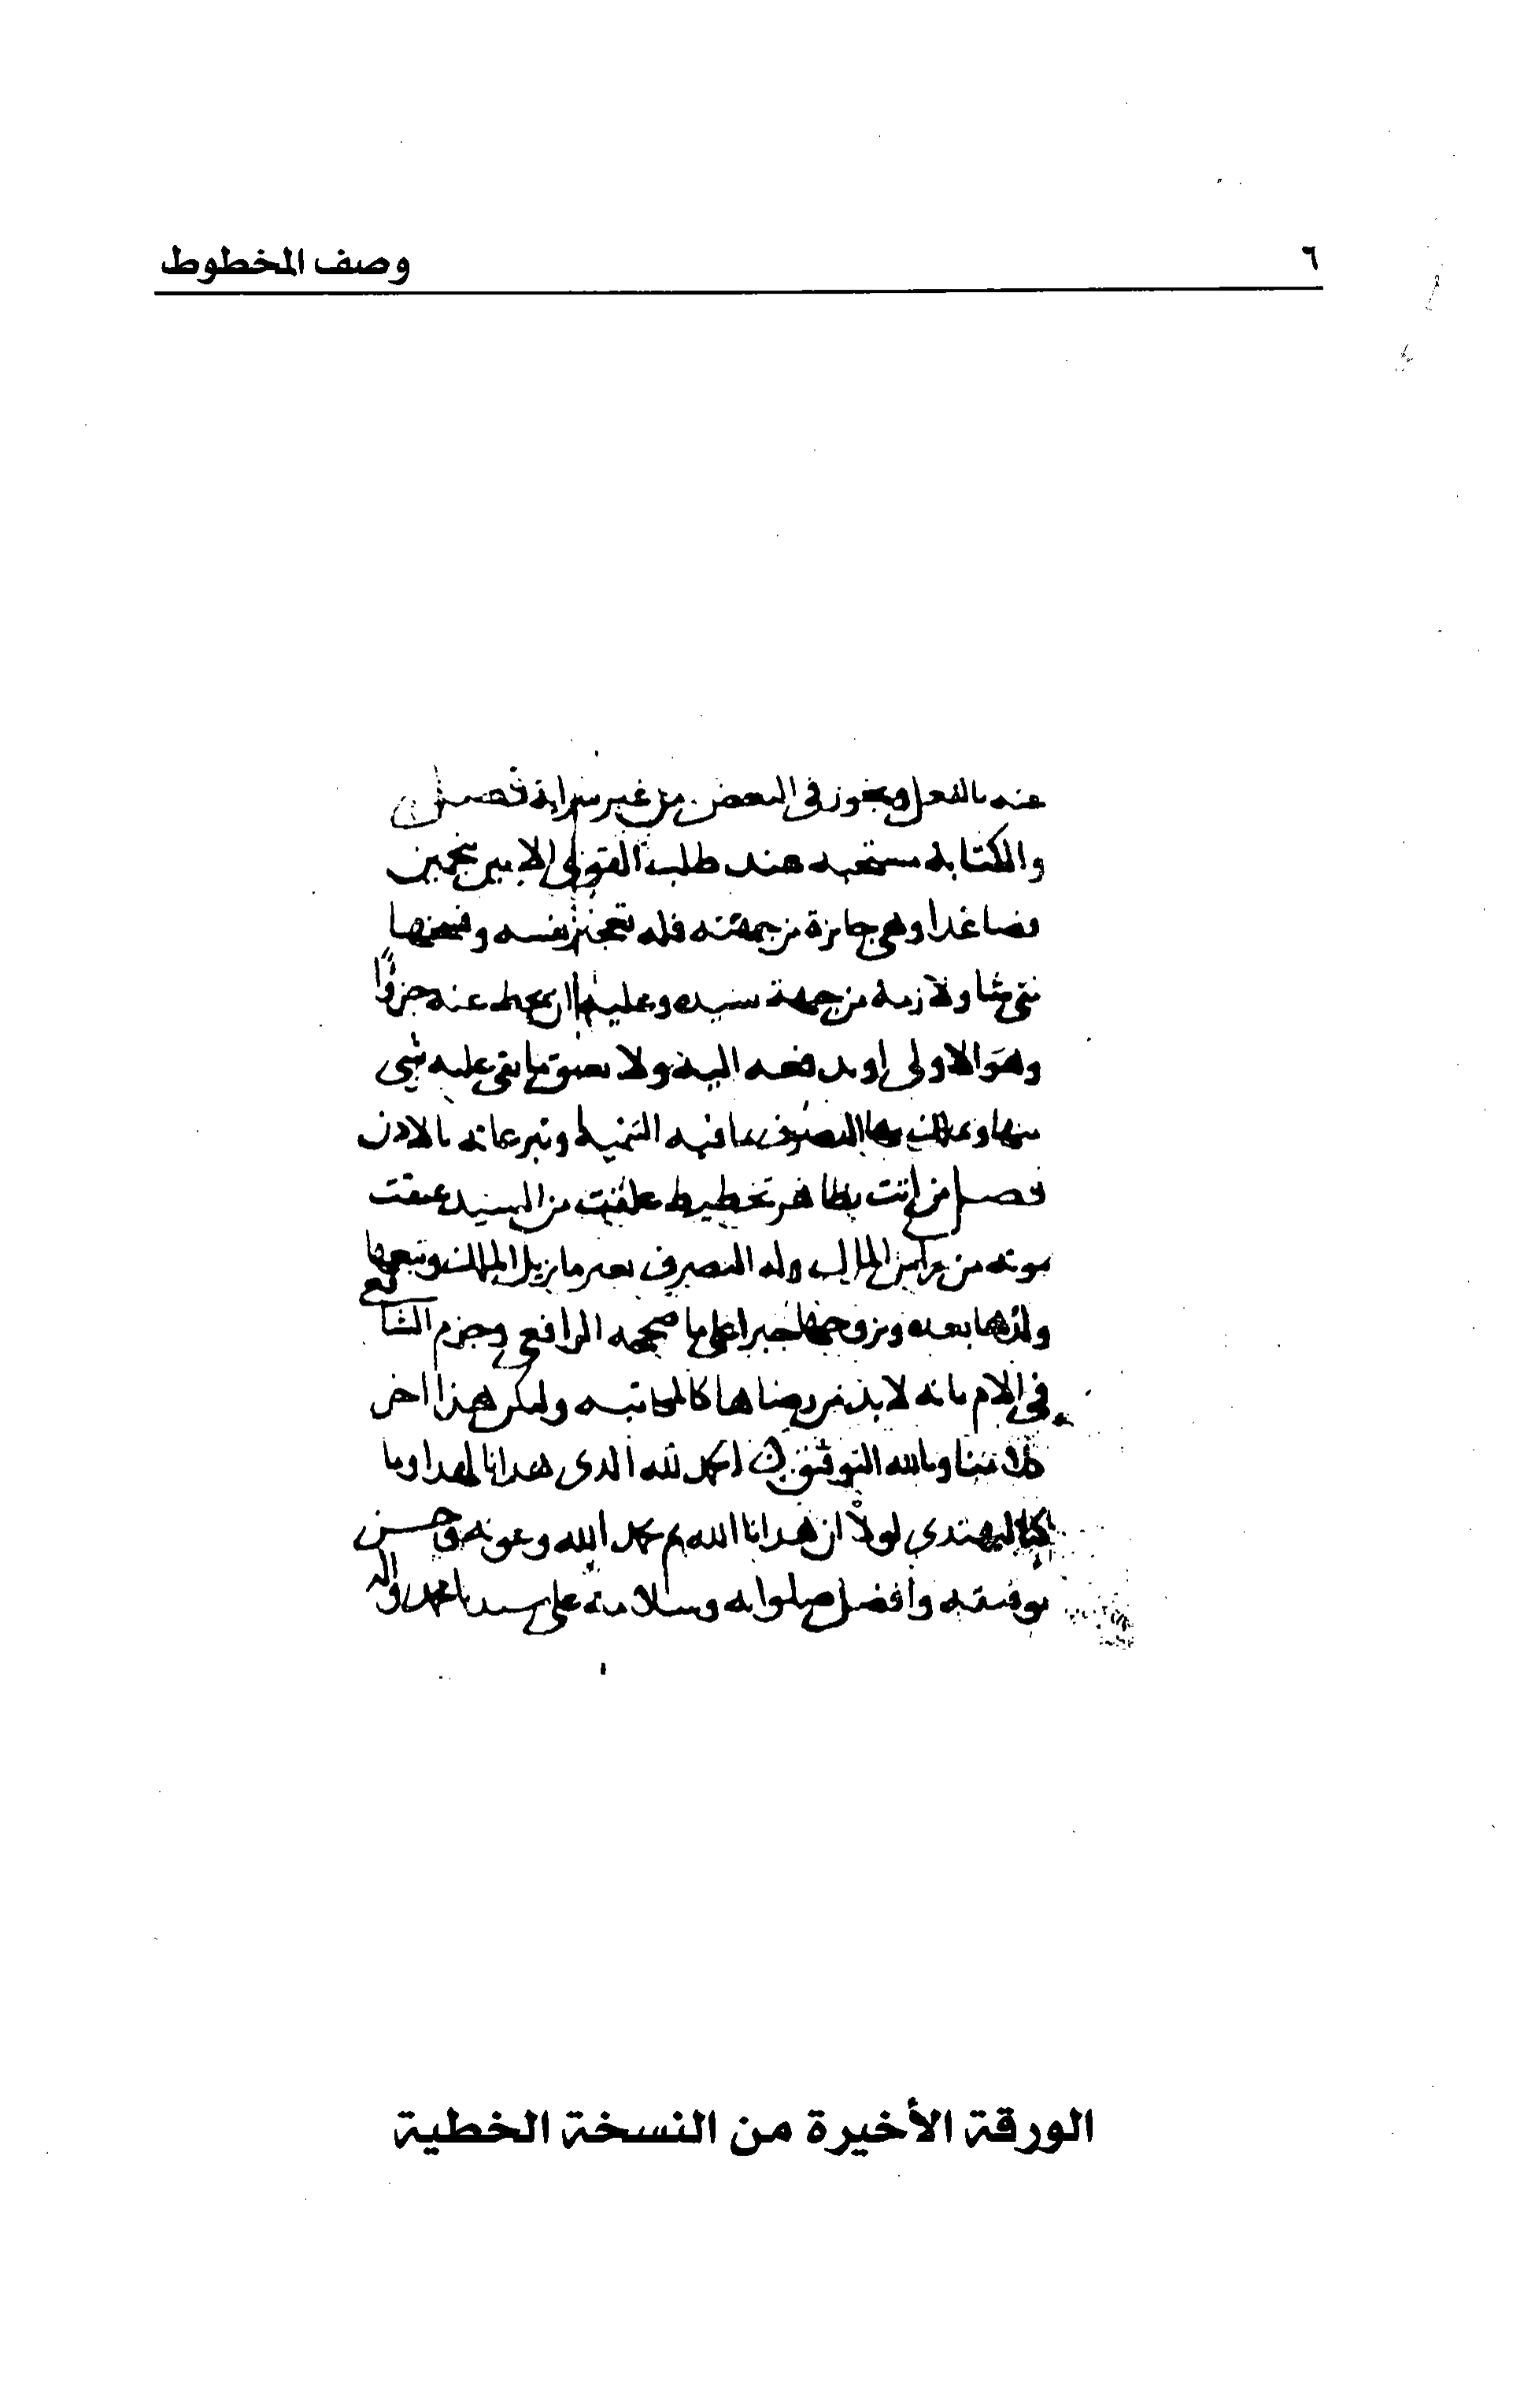 ٦
وصف المخطوط
عنه بالفعل ويجوز في البعض من غير سراية فصل
والكتابة مستحبه عند طلب القوي الامين بنجمين
فصاعدا وهي جايزة من جهته فله تعجيز نفسه وفسخها
متى شا ولازمة من جهة سيده وعليه ان يحط عنه جزوًا
وهو الاولى او يدفعه اليه ولا يعتق ما بقي عليه شي
منها ويملك بها التصرف بما فيه التنمية وتبرعاته بالاذن
فصل من اتت بظاهر تخطيط علقت من السيد عتقت
بموته من راس المال وله التصرف بغير ما يزيل الملك ويتبعها
ولدها بعده ويزوجها جبرا على ما صححه الرافعي وجزم الشافعي
في الام بانه لا بد من رضاها كالمكاتبه وليكن هذا اخر
كلامنا وبالله التوفيق الحمد لله الذي هدانا لهذا وما
كنا لنهتدي لولا ان هدانا الله تم بحمد الله وعونه وحسن
توفيقه وافضل صلواته وسلامه على سيدنا محمد واله
الورقة الأخيرة من النسخة الخطية